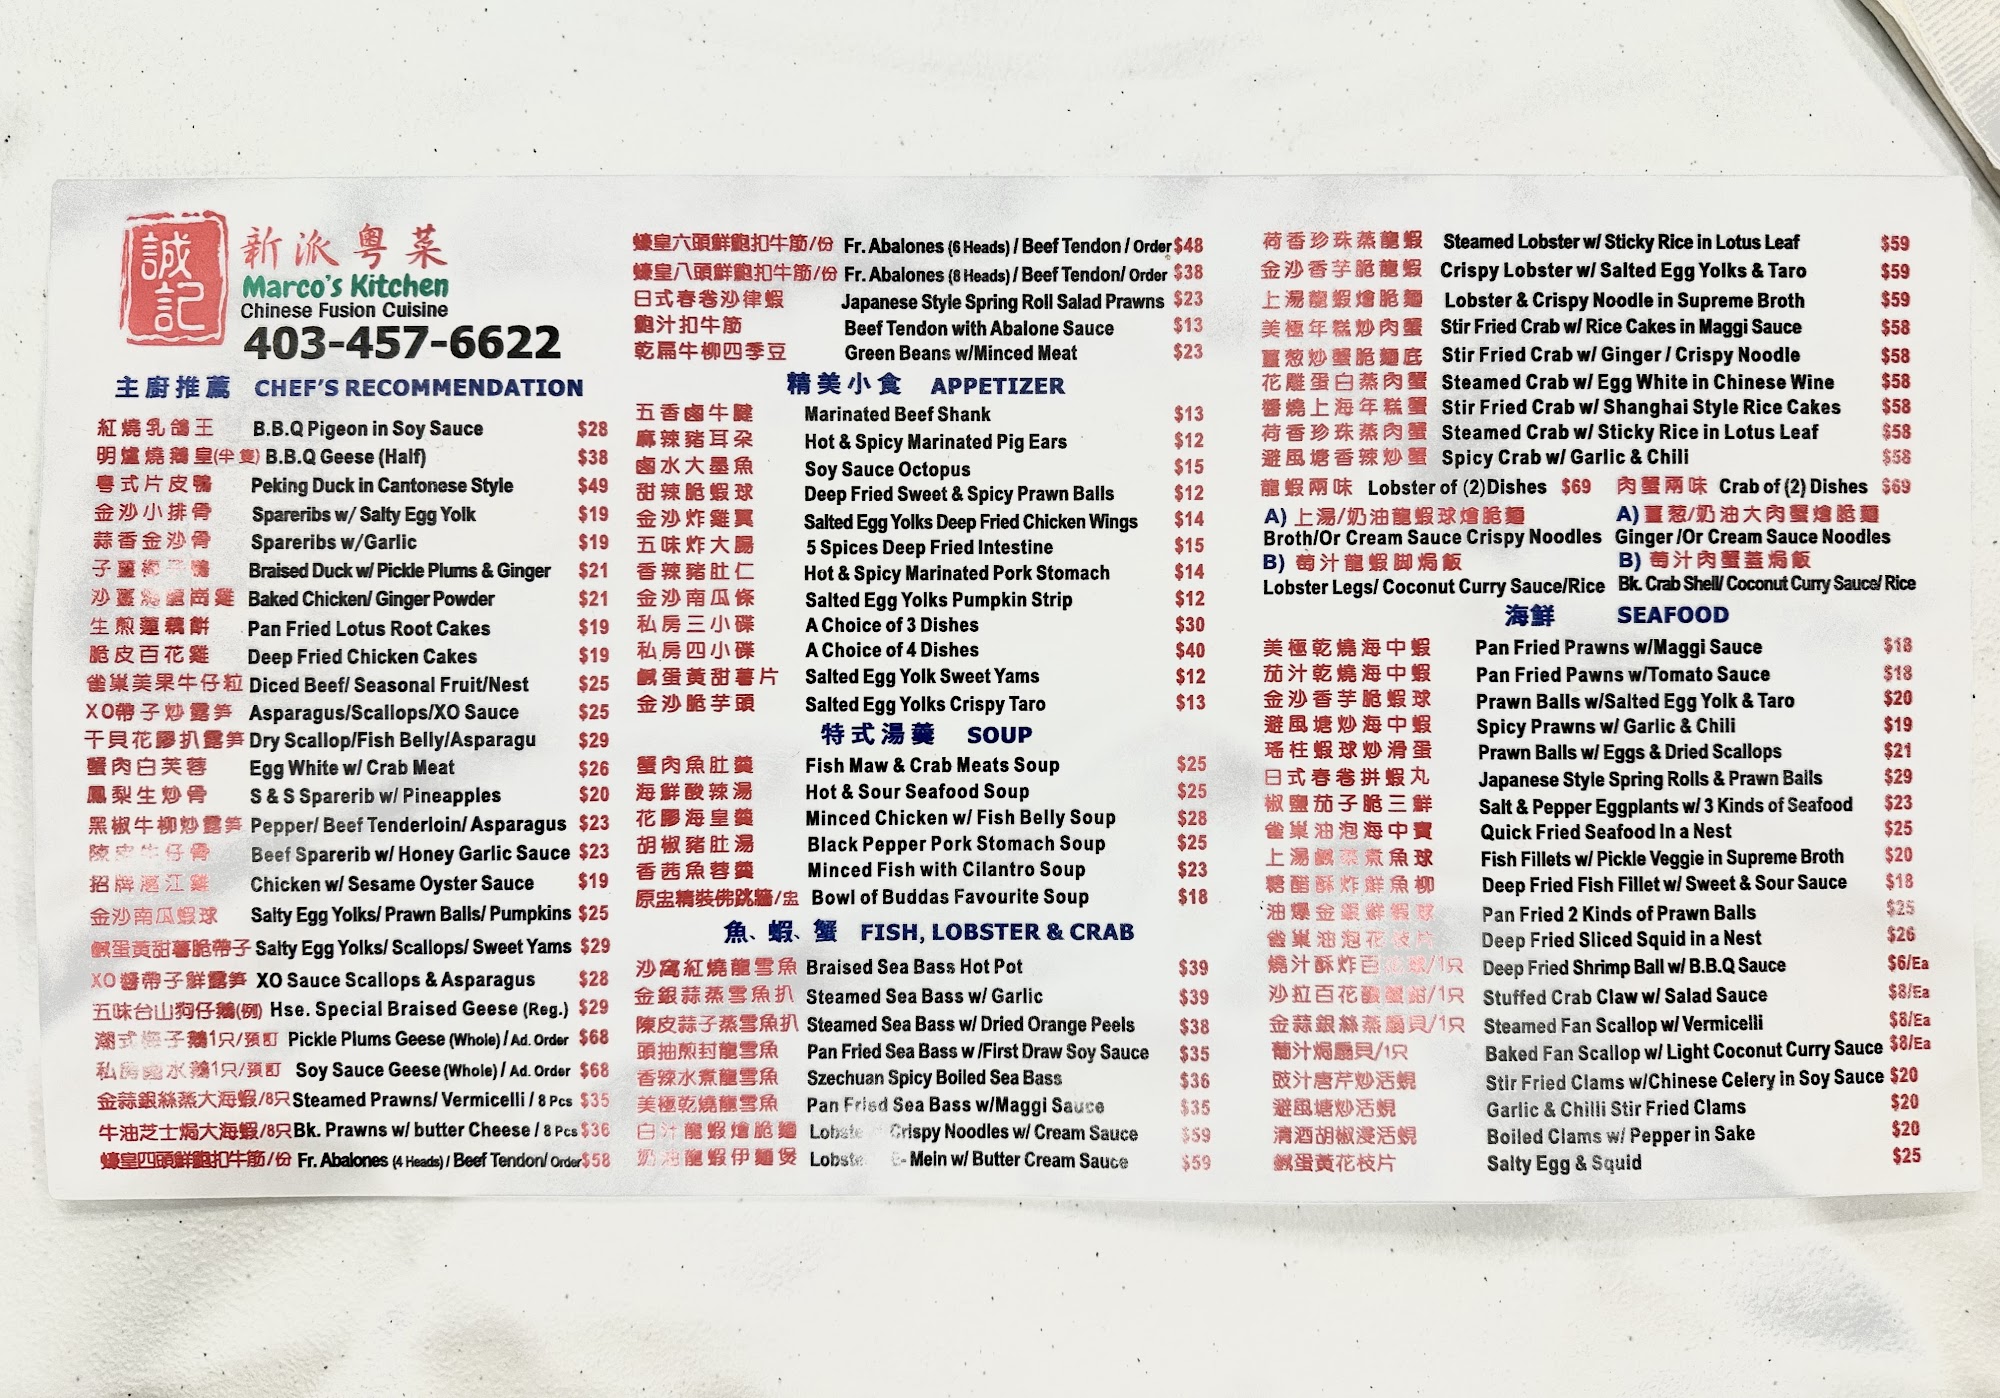 誠記
新派粵菜
Marco's Kitchen
Chinese Fusion Cuisine
403-457-6622
主廚推薦 CHEF'S RECOMMENDATION
紅燒乳鴿王 B.B.Q Pigeon in Soy Sauce $28
明爐燒鵝皇(半隻) B.B.Q Geese (Half) $38
粵式片皮鴨 Peking Duck in Cantonese Style $49
金沙小排骨 Spareribs w/ Salty Egg Yolk $19
蒜香金沙骨 Spareribs w/Garlic $19
子薑 鴨 Braised Duck w/ Pickle Plums & Ginger $21
沙薑 雞 Baked Chicken/ Ginger Powder $21
生煎蓮藕餅 Pan Fried Lotus Root Cakes $19
脆皮百花雞 Deep Fried Chicken Cakes $19
雀巢美果牛仔粒 Diced Beef/ Seasonal Fruit/Nest $25
XO帶子炒露笋 Asparagus/Scallops/XO Sauce $25
干貝花膠扒露笋 Dry Scallop/Fish Belly/Asparagu $29
蟹肉白芙蓉 Egg White w/ Crab Meat $26
鳳梨生炒骨 S & S Sparerib w/ Pineapples $20
黑椒牛柳炒露笋 Pepper/ Beef Tenderloin/ Asparagus $23
陳皮牛仔骨 Beef Sparerib w/ Honey Garlic Sauce $23
招牌 江雞 Chicken w/ Sesame Oyster Sauce $19
金沙南瓜蝦球 Salty Egg Yolks/ Prawn Balls/ Pumpkins $25
鹹蛋黃甜薯脆帶子 Salty Egg Yolks/ Scallops/ Sweet Yams $29
XO醬帶子鮮露笋 XO Sauce Scallops & Asparagus $28
五味台山狗仔鵝(例) Hse. Special Braised Geese (Reg.) $29
潮式梅子鵝1只/預訂 Pickle Plums Geese (Whole) / Ad. Order $68
私房鹵水鵝1只/預訂 Soy Sauce Geese (Whole) / Ad. Order $68
金蒜銀絲蒸大海蝦/8只 Steamed Prawns/ Vermicelli / 8 Pcs $35
牛油芝士焗大海蝦/8只 Bk. Prawns w/ butter Cheese / 8 Pcs $36
蠔皇四頭鮮鮑扣牛筋/份 Fr. Abalones (4 Heads) / Beef Tendon/ Order $58
蠔皇六頭鮮鮑扣牛筋/份 Fr. Abalones (6 Heads) / Beef Tendon / Order $48
蠔皇八頭鮮鮑扣牛筋/份 Fr. Abalones (8 Heads) / Beef Tendon/ Order $38
日式春卷沙律蝦 Japanese Style Spring Roll Salad Prawns $23
鮑汁扣牛筋 Beef Tendon with Abalone Sauce $13
乾扁牛柳四季豆 Green Beans w/Minced Meat $23
精美小食 APPETIZER
五香鹵牛腱 Marinated Beef Shank $13
麻辣豬耳朶 Hot & Spicy Marinated Pig Ears $12
鹵水大墨魚 Soy Sauce Octopus $15
甜辣脆蝦球 Deep Fried Sweet & Spicy Prawn Balls $12
金沙炸雞翼 Salted Egg Yolks Deep Fried Chicken Wings $14
五味炸大腸 5 Spices Deep Fried Intestine $15
香辣豬肚仁 Hot & Spicy Marinated Pork Stomach $14
金沙南瓜條 Salted Egg Yolks Pumpkin Strip $12
私房三小碟 A Choice of 3 Dishes $30
私房四小碟 A Choice of 4 Dishes $40
鹹蛋黃甜薯片 Salted Egg Yolk Sweet Yams $12
金沙脆芋頭 Salted Egg Yolks Crispy Taro $13
特式湯羹 SOUP
蟹肉魚肚羹 Fish Maw & Crab Meats Soup $25
海鮮酸辣湯 Hot & Sour Seafood Soup $25
花膠海皇羹 Minced Chicken w/ Fish Belly Soup $28
胡椒豬肚湯 Black Pepper Pork Stomach Soup $25
香茜魚蓉羹 Minced Fish with Cilantro Soup $23
原盅精裝佛跳牆/盅 Bowl of Buddas Favourite Soup $18
魚、蝦、蟹 FISH, LOBSTER & CRAB
沙窩紅燒龍雪魚 Braised Sea Bass Hot Pot $39
金銀蒜蒸雪魚扒 Steamed Sea Bass w/ Garlic $39
陳皮蒜子蒸雪魚扒 Steamed Sea Bass w/ Dried Orange Peels $38
頭抽煎封龍雪魚 Pan Fried Sea Bass w /First Draw Soy Sauce $35
香辣水煮龍雪魚 Szechuan Spicy Boiled Sea Bass $36
美極乾燒龍雪魚 Pan Fried Sea Bass w/Maggi Sauce $35
白汁龍蝦燴脆麵 Lobste Crispy Noodles w/ Cream Sauce $59
奶油龍蝦伊麵煲 Lobste E- Mein w/ Butter Cream Sauce $59
荷香珍珠蒸龍蝦 Steamed Lobster w/ Sticky Rice in Lotus Leaf $59
金沙香芋脆龍蝦 Crispy Lobster w/ Salted Egg Yolks & Taro $59
上湯龍蝦燴脆麵 Lobster & Crispy Noodle in Supreme Broth $59
美極年糕炒肉蟹 Stir Fried Crab w/ Rice Cakes in Maggi Sauce $58
薑葱炒蟹脆麵底 Stir Fried Crab w/ Ginger / Crispy Noodle $58
花雕蛋白蒸肉蟹 Steamed Crab w/ Egg White in Chinese Wine $58
醬燒上海年糕蟹 Stir Fried Crab w/ Shanghai Style Rice Cakes $58
荷香珍珠蒸肉蟹 Steamed Crab w/ Sticky Rice in Lotus Leaf $58
避風塘香辣炒蟹 Spicy Crab w/ Garlic & Chili $58
龍蝦兩味 Lobster of (2)Dishes $69 肉蟹兩味 Crab of (2) Dishes $69
A) 上湯/奶油龍蝦球燴脆麵 A) 薑葱/奶油大肉蟹燴脆麵
Broth/Or Cream Sauce Crispy Noodles Ginger /Or Cream Sauce Noodles
B) 葡汁龍蝦脚焗飯 B) 葡汁肉蟹蓋焗飯
Lobster Legs/ Coconut Curry Sauce/Rice Bk. Crab Shell/ Coconut Curry Sauce/ Rice
海鮮 SEAFOOD
美極乾燒海中蝦 Pan Fried Prawns w/Maggi Sauce $18
茄汁乾燒海中蝦 Pan Fried Pawns w/Tomato Sauce $18
金沙香芋脆蝦球 Prawn Balls w/Salted Egg Yolk & Taro $20
避風塘炒海中蝦 Spicy Prawns w/ Garlic & Chili $19
瑤柱蝦球炒滑蛋 Prawn Balls w/ Eggs & Dried Scallops $21
日式春卷拼蝦丸 Japanese Style Spring Rolls & Prawn Balls $29
椒鹽茄子脆三鮮 Salt & Pepper Eggplants w/ 3 Kinds of Seafood $23
雀巢油泡海中寶 Quick Fried Seafood In a Nest $25
上湯鹹菜煮魚球 Fish Fillets w/ Pickle Veggie in Supreme Broth $20
糖醋酥炸鮮魚柳 Deep Fried Fish Fillet w/ Sweet & Sour Sauce $18
油爆金銀鮮蝦球 Pan Fried 2 Kinds of Prawn Balls $25
雀巢油泡花枝片 Deep Fried Sliced Squid in a Nest $26
燒汁酥炸百花 /1只 Deep Fried Shrimp Ball w/ B.B.Q Sauce $6/Ea
沙拉百花釀蟹鉗/1只 Stuffed Crab Claw w/ Salad Sauce $8/Ea
金蒜銀絲蒸扇貝/1只 Steamed Fan Scallop w/ Vermicelli $8/Ea
葡汁焗扇貝/1只 Baked Fan Scallop w/ Light Coconut Curry Sauce $8/Ea
豉汁唐芹炒活蜆 Stir Fried Clams w/Chinese Celery in Soy Sauce $20
避風塘炒活蜆 Garlic & Chilli Stir Fried Clams $20
清酒胡椒浸活蜆 Boiled Clams w/ Pepper in Sake $20
鹹蛋黃花枝片 Salty Egg & Squid $25